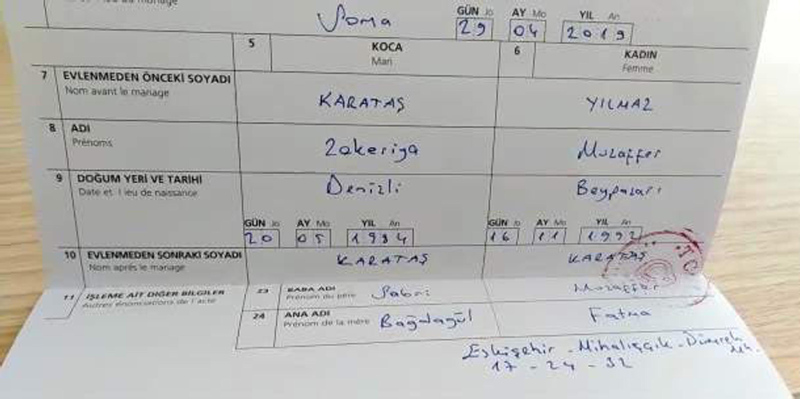 GÜN Jo AY Mo YIL An
Soma 29 04 2019
5 KOCA 6 KADIN
Mari Femme
7 EVLENMEDEN ÖNCEKİ SOYADI
Nom avant le mariage
KARATAŞ YILMAZ
8 ADI
Prénoms
Zakeriya Muzaffer
9 DOĞUM YERİ VE TARİHİ
Date et lieu de naissance
Denizli Beypazarı
GÜN Jo AY Mo YIL An GÜN Jo AY Mo YIL An
20 05 1994 16 11 1992
10 EVLENMEDEN SONRAKİ SOYADI
Nom après le mariage
KARATAŞ KARATAŞ
11 İŞLEME AİT DİĞER BİLGİLER
Autres énonciations de l'acte
23 BABA ADI
Prénom du père
Sabri Muzaffer
24 ANA ADI
Prénom de la mère
Bağdagül Fatma
Eskişehir - Mihalıççık -
17 - 24 - 32
T.C.